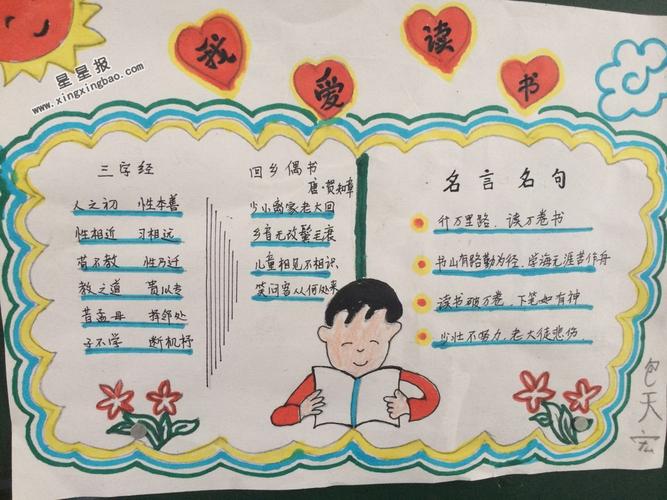 我爱读书
星星报
www.xingxingbao.com
三字经
人之初 性本善
性相近 习相远
苟不教 性乃迁
教之道 贵以专
昔孟母 择邻处
子不学 断机杼
回乡偶书
唐·贺知章
少小离家老大回
乡音无改鬓毛衰
儿童相见不相识,
笑问客从何处来
名言名句
行万里路、读万卷书
书山有路勤为径、学海无涯苦作舟
读书破万卷、下笔如有神
少壮不努力、老大徒悲伤.
包天